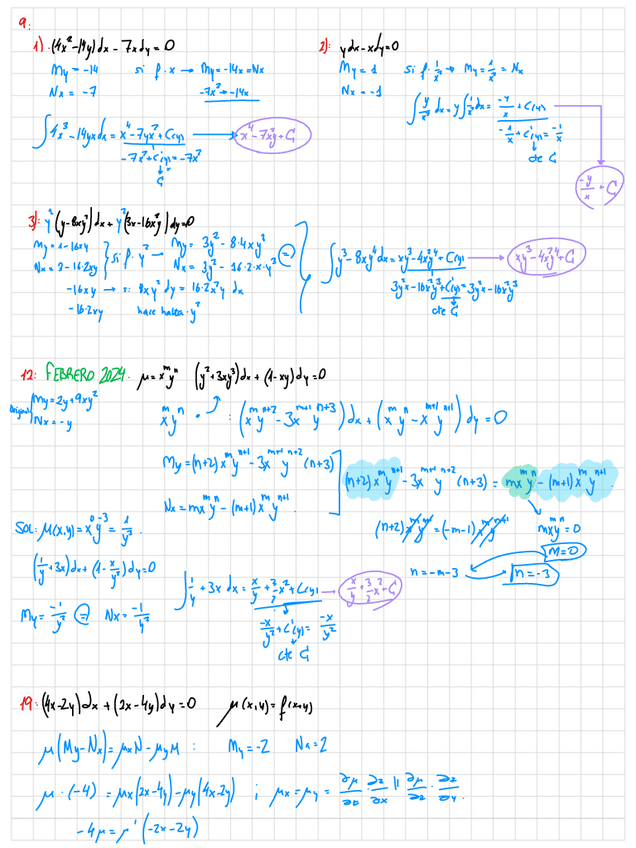 9.
1) (4x²-14y)dx - 7xdy = 0
My = -14 si f.x → My = -14x = Nx
Nx = -7 -7x² → -14x
∫4x³ - 14yx dx = x⁴ - 7yx² + C(y) → x⁴ - 7x²y + C
-7x² + C'(y) = -7x²
2): ydx - xdy = 0
My = 1 si f. 1/x² → My = 1/x² = Nx
Nx = -1
∫ y/x² dx = y∫ 1/x² dx = -y/x + C(y)
-1/x + C'(y) = -1/x
cte C
-y/x + C
3): y² (y-8xy²)dx + y²(3x-16x²y)dy = 0
My = 1-16xy } si f. y² → My = 3y² - 8·4xy³
Nx = 3-16·2xy Nx = 3y² - 16·2·x·y³
-16xy → si 8xy² dy = 16·2x²y dx
-16·2xy hace falta · y²
∫y³ - 8xy⁴ dx = xy³ - 4x²y⁴ + C(y) → xy³ - 4x²y⁴ + C
3y²x - 16x²y³ + C'(y) = 3y²x - 16x²y³
cte C
12: FEBRERO 2024. μ = xᵐyⁿ (y²+3xy³)dx + (1-xy)dy = 0
Original { My = 2y + 9xy²
Nx = -y
xᵐyⁿ · : (xᵐyⁿ⁺² - 3xᵐ⁺¹yⁿ⁺³)dx + (xᵐyⁿ - xᵐ⁺¹yⁿ⁺¹)dy = 0
My = (n+2)xᵐyⁿ⁺¹ - 3xᵐ⁺¹yⁿ⁺²(n+3)
Nx = mxᵐyⁿ - (m+1)xᵐyⁿ⁺¹
(n+2)xᵐyⁿ⁺¹ - 3xᵐ⁺¹yⁿ⁺²(n+3) = mxᵐyⁿ - (m+1)xᵐyⁿ⁺¹
(n+2)xᵐyⁿ⁺¹ = (-m-1)xᵐyⁿ⁺¹ mxᵐyⁿ = 0
m = 0
n = -m-3 n = -3
Sol: μ(x,y) = x⁰y⁻³ = 1/y³.
(1/y + 3x)dx + (1 - x/y²)dy = 0
My = -1/y² = Nx = -1/y²
∫ 1/y + 3x dx = x/y + 3/2 x² + C(y) → x/y + 3/2 x² + C
-x/y² + C'(y) = -x/y²
cte C
19: (4x-2y)dx + (2x-4y)dy = 0 μ(x,y) = f(x+y)
μ(My-Nx) = μxN - μyM : My = -2 Nx = 2
μ·(-4) = μx(2x-4y) - μy(4x-2y) ; μx = μy = ∂μ/∂z · ∂z/∂x || ∂μ/∂z · ∂z/∂y.
-4μ = μ'(-2x-2y)